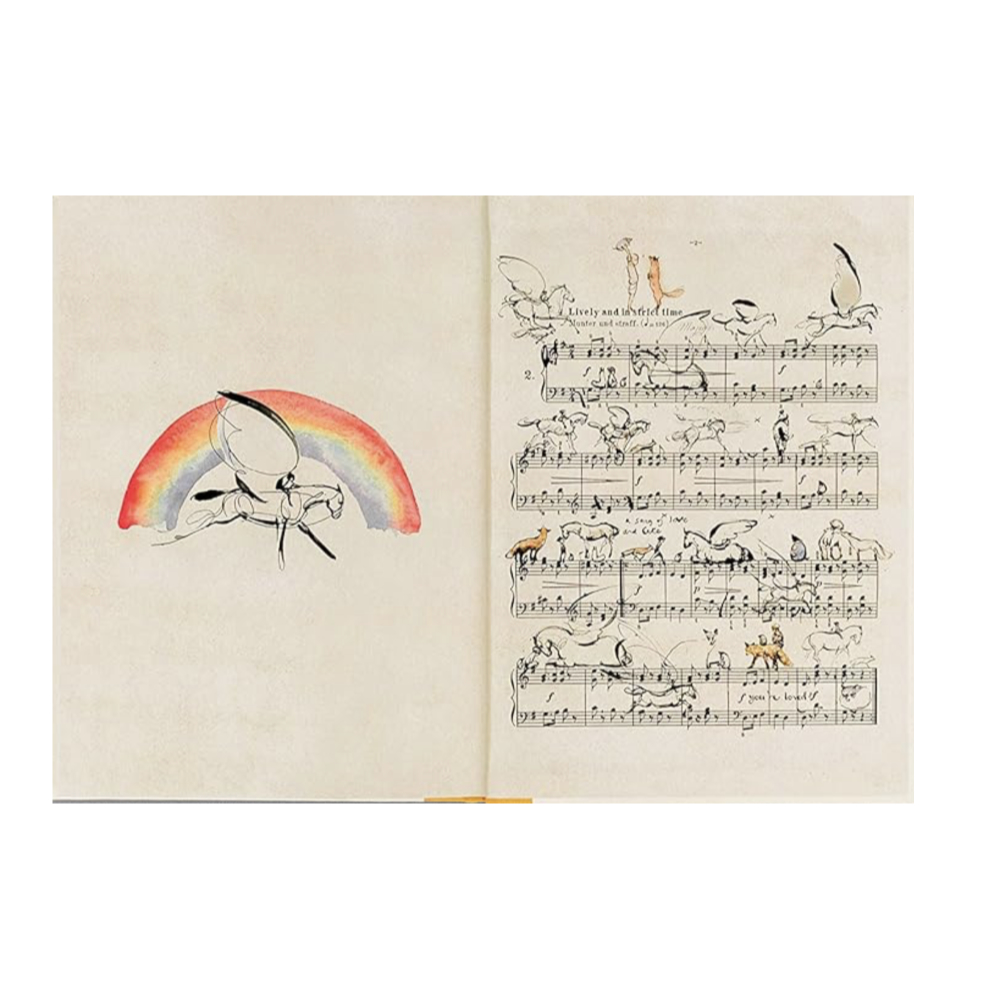 -2-
Lively and in strict time
Munter und straff. (♩=126)
2.
a song of love
and life
you're loved